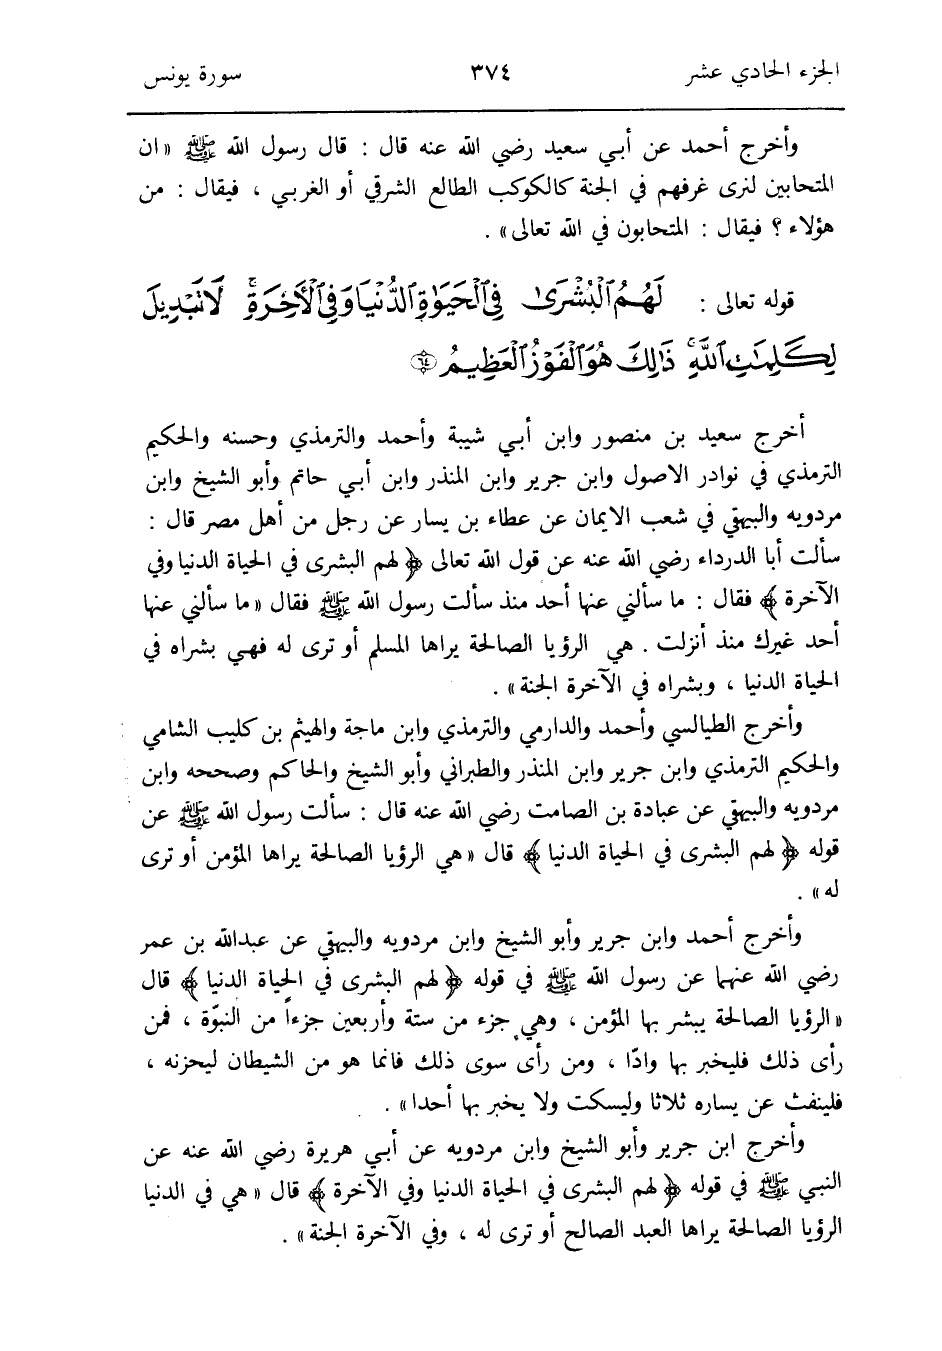 الجزء الحادي عشر ٣٧٤ سورة يونس
وأخرج أحمد عن أبي سعيد رضي الله عنه قال : قال رسول الله ﷺ « ان
المتحابين لنرى غرفهم في الجنة كالكوكب الطالع الشرقي أو الغربي ، فيقال : من
هؤلاء ؟ فيقال : المتحابون في الله تعالى» .
قوله تعالى : لَهُمُ ٱلْبُشْرَىٰ فِى ٱلْحَيَوٰةِ ٱلدُّنْيَا وَفِى ٱلْأَخِرَةِۚ لَا تَبْدِيلَ
لِكَلِمَٰتِ ٱللَّهِۚ ذَٰلِكَ هُوَ ٱلْفَوْزُ ٱلْعَظِيمُ ٦٤
أخرج سعيد بن منصور وابن أبي شيبة وأحمد والترمذي وحسنه والحكيم
الترمذي في نوادر الاصول وابن جرير وابن المنذر وابن أبي حاتم وأبو الشيخ وابن
مردويه والبيهقي في شعب الايمان عن عطاء بن يسار عن رجل من أهل مصر قال :
سألت أبا الدرداء رضي الله عنه عن قول الله تعالى ﴿ لهم البشرى في الحياة الدنيا وفي
الآخرة ﴾ فقال : ما سألني عنها أحد منذ سألت رسول الله ﷺ فقال « ما سألني عنها
أحد غيرك منذ أنزلت . هي الرؤيا الصالحة يراها المسلم أو ترى له فهي بشراه في
الحياة الدنيا ، وبشراه في الآخرة الجنة» .
وأخرج الطيالسي وأحمد والدارمي والترمذي وابن ماجة والهيثم بن كليب الشامي
والحكيم الترمذي وابن جرير وابن المنذر والطبراني وأبو الشيخ والحاكم وصححه وابن
مردويه والبيهقي عن عبادة بن الصامت رضي الله عنه قال : سألت رسول الله ﷺ عن
قوله ﴿ لهم البشرى في الحياة الدنيا ﴾ قال « هي الرؤيا الصالحة يراها المؤمن أو ترى
له» .
وأخرج أحمد وابن جرير وأبو الشيخ وابن مردويه والبيهقي عن عبدالله بن عمر
رضي الله عنهما عن رسول الله ﷺ في قوله ﴿ لهم البشرى في الحياة الدنيا ﴾ قال
« الرؤيا الصالحة يبشر بها المؤمن ، وهي جزء من ستة وأربعين جزءاً من النبوّة ، فمن
رأى ذلك فليخبر بها وادّا ، ومن رأى سوى ذلك فانما هو من الشيطان ليحزنه ،
فلينفث عن يساره ثلاثا وليسكت ولا يخبر بها أحدا» .
وأخرج ابن جرير وأبو الشيخ وابن مردويه عن أبي هريرة رضي الله عنه عن
النبي ﷺ في قوله ﴿ لهم البشرى في الحياة الدنيا وفي الآخرة ﴾ قال « هي في الدنيا
الرؤيا الصالحة يراها العبد الصالح أو ترى له ، وفي الآخرة الجنة» .